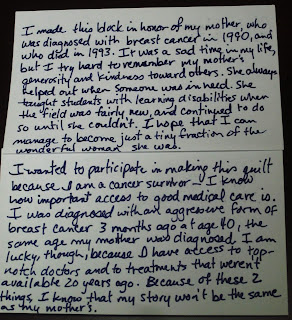 I made this block in honor of my mother, who
was diagnosed with breast cancer in 1990, and
who died in 1993. It was a sad time in my life,
but I try hard to remember my mother's
generosity and kindness toward others. She always
helped out when someone was in need. She
taught students with learning disabilities when
the field was fairly new, and continued to do
so until she couldn't. I hope that I can
manage to become just a tiny fraction of the
wonderful woman she was.
I wanted to participate in making this quilt
because I am a cancer survivor - I know
how important access to good medical care is.
I was diagnosed with an aggressive form of
breast cancer 3 months ago at age 40, the
same age my mother was diagnosed. I am
lucky, though, because I have access to top-
notch doctors and to treatments that weren't
available 20 years ago. Because of these 2
things, I know that my story won't be the same
as my mother's.